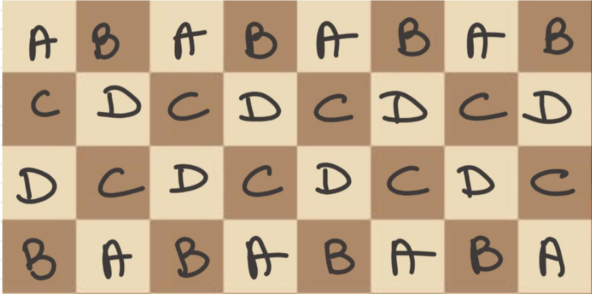 A B A B A B A B
C D C D C D C D
D C D C D C D C
B A B A B A B A